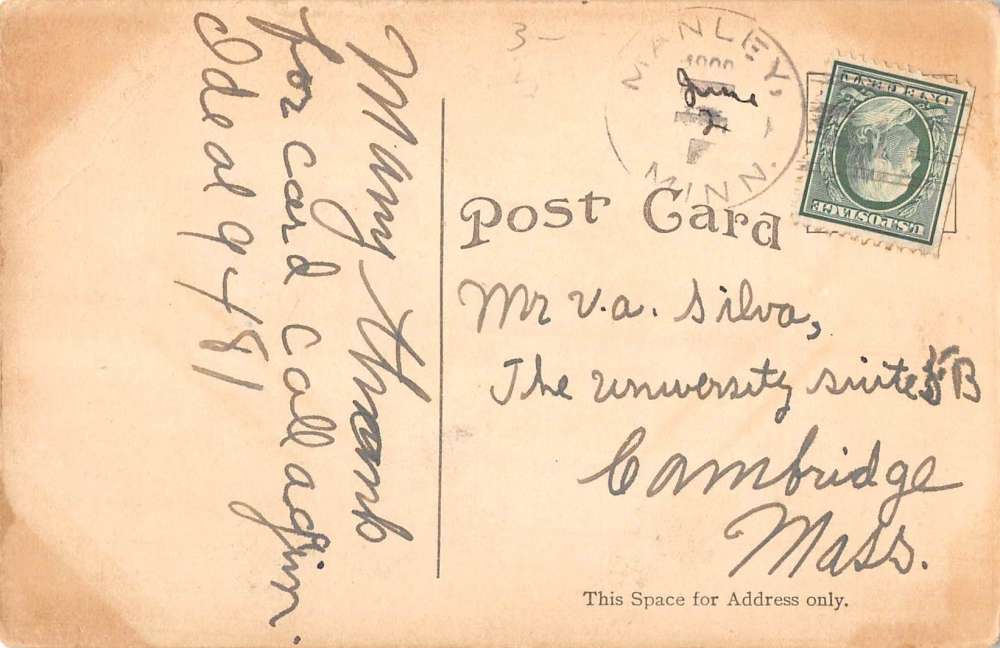 Many thanks
for card call again.
Ideal 9481
3-
MANLEY,
1909
June
2
MINN.
ONE CENT
U.S. POSTAGE
Post Card
Mr V.a. Silva,
The university suite B
Cambridge
Mass.
This Space for Address only.